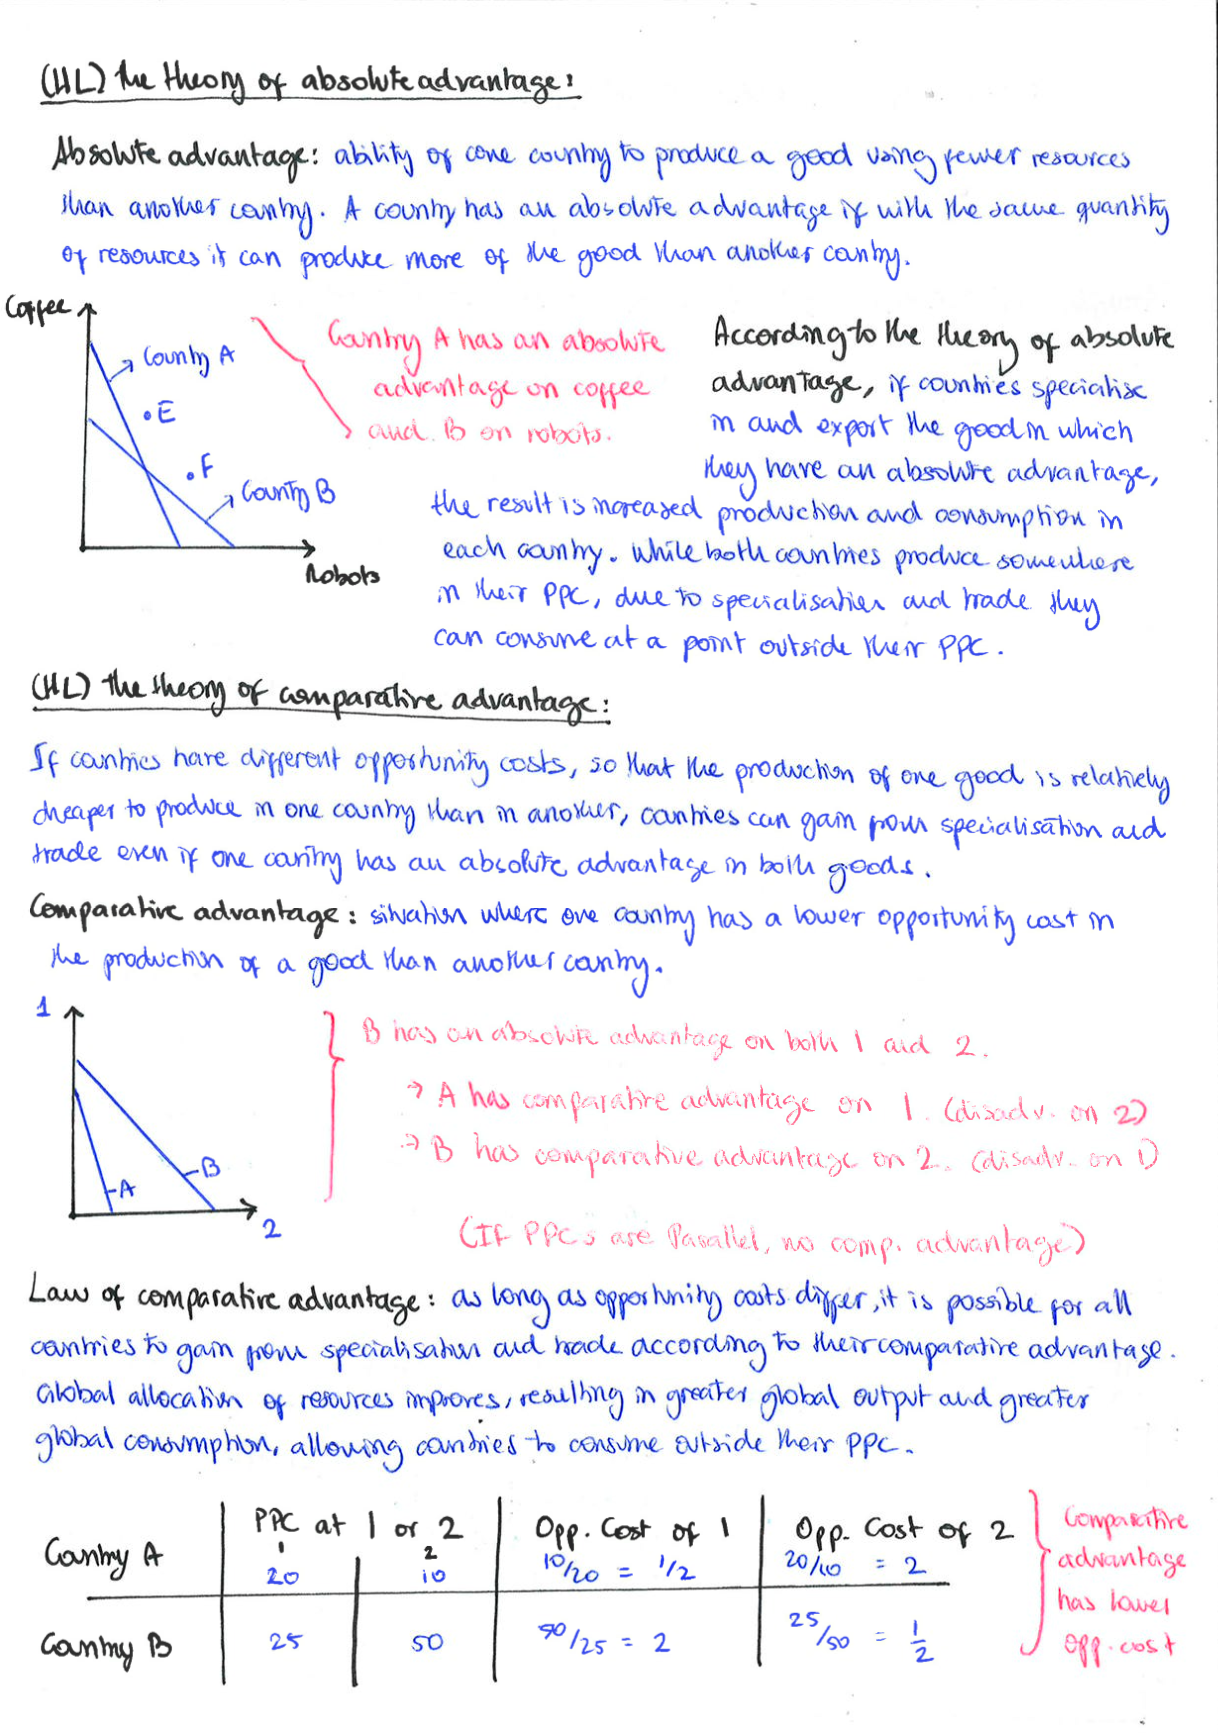 (HL) the theory of absolute advantage:
Absolute advantage: ability of one country to produce a good using fewer resources
than another country. A country has an absolute advantage if with the same quantity
of resources it can produce more of the good than another country.
Coffee
Country A
E
F
Country B
Robots
Country A has an absolute
advantage on coffee
and B on robots.
According to the theory of absolute
advantage, if countries specialise
in and export the good in which
they have an absolute advantage,
the result is increased production and consumption in
each country. While both countries produce somewhere
in their PPC, due to specialisation and trade they
can consume at a point outside their PPC.
(HL) the theory of comparative advantage:
If countries have different opportunity costs, so that the production of one good is relatively
cheaper to produce in one country than in another, countries can gain from specialisation and
trade even if one country has an absolute advantage in both goods.
Comparative advantage: situation where one country has a lower opportunity cost in
the production of a good than another country.
1
A
B
2
B has an absolute advantage on both 1 and 2.
→ A has comparative advantage on 1. (disadv. on 2)
→ B has comparative advantage on 2. (disadv. on 1)
(If PPCs are Parallel, no comp. advantage)
Law of comparative advantage: as long as opportunity costs differ, it is possible for all
countries to gain from specialisation and trade according to their comparative advantage.
Global allocation of resources improves, resulting in greater global output and greater
global consumption, allowing countries to consume outside their PPC.
PPC at 1 or 2 Opp. Cost of 1 Opp. Cost of 2
Country A 1 20 2 10 10/20 = 1/2 20/10 = 2
Country B 25 50 50/25 = 2 25/50 = 1/2
Comparative
advantage
has lower
opp. cost